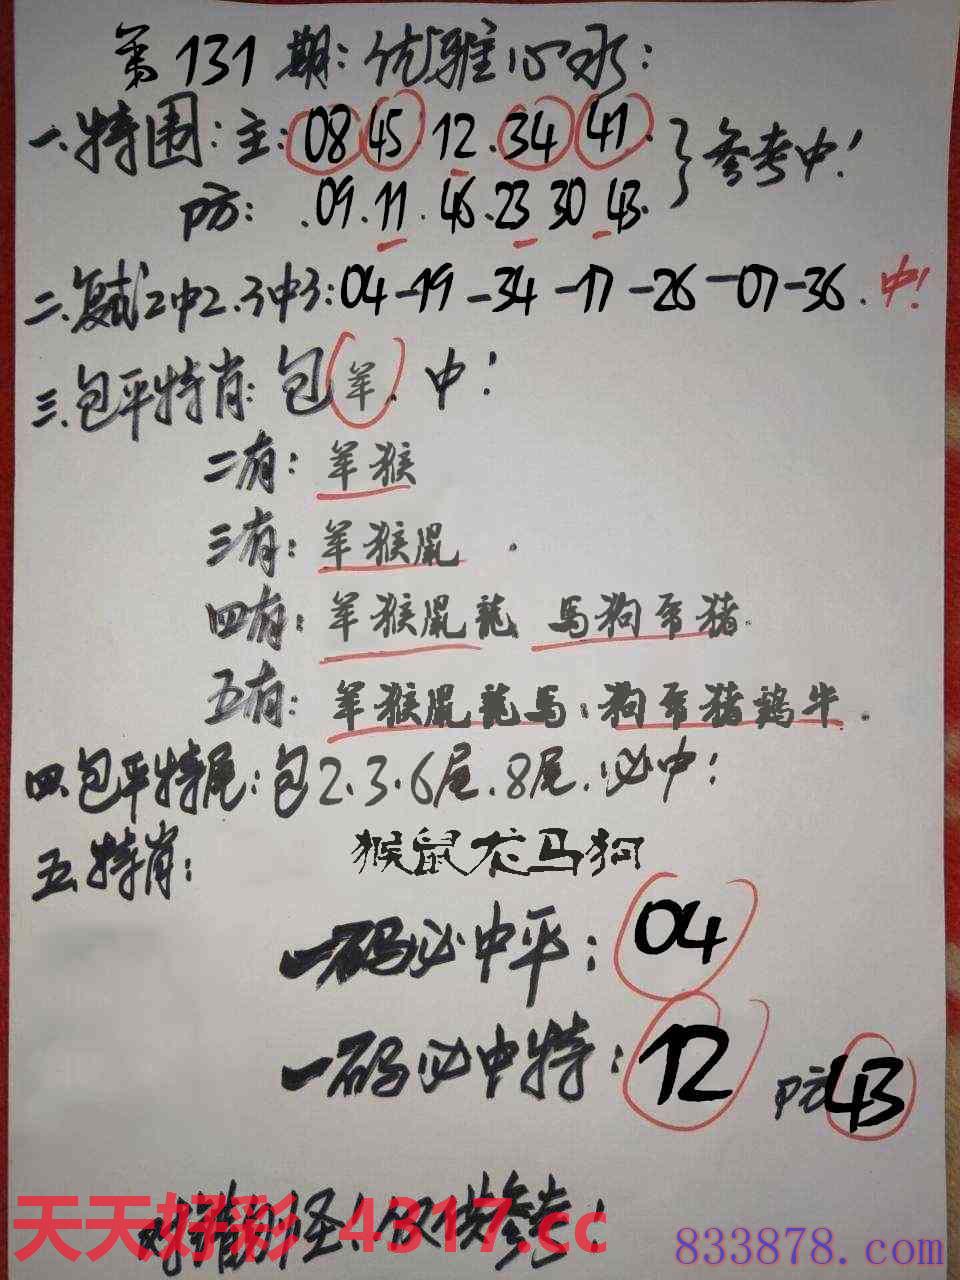 第131期:优雅心水:
一.特围:主:08 45.12.34 41.}参考中!
防:.09.11.46.23 30 43.
二.复试2中2.3中3:04-19-34-17-26-07-36.中!
三.包平特肖:包羊.中!
二有:羊猴
三有:羊猴鼠.
四有:羊猴鼠龍 馬狗 猪.
五有:羊猴鼠龍馬:狗 猪鷄牛.
四.包平特尾:包2.3.6尾.8尾.必中!
五.特肖:猴鼠龙马狗
一码必中平:04
一码必中特:12 防43
怪!仅供参考!
天天好彩 4317.cc
833878.com